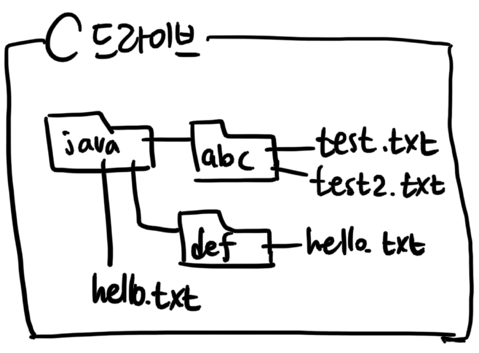 C 드라이브
java
abc
test.txt
test2.txt
def
hello.txt
hello.txt